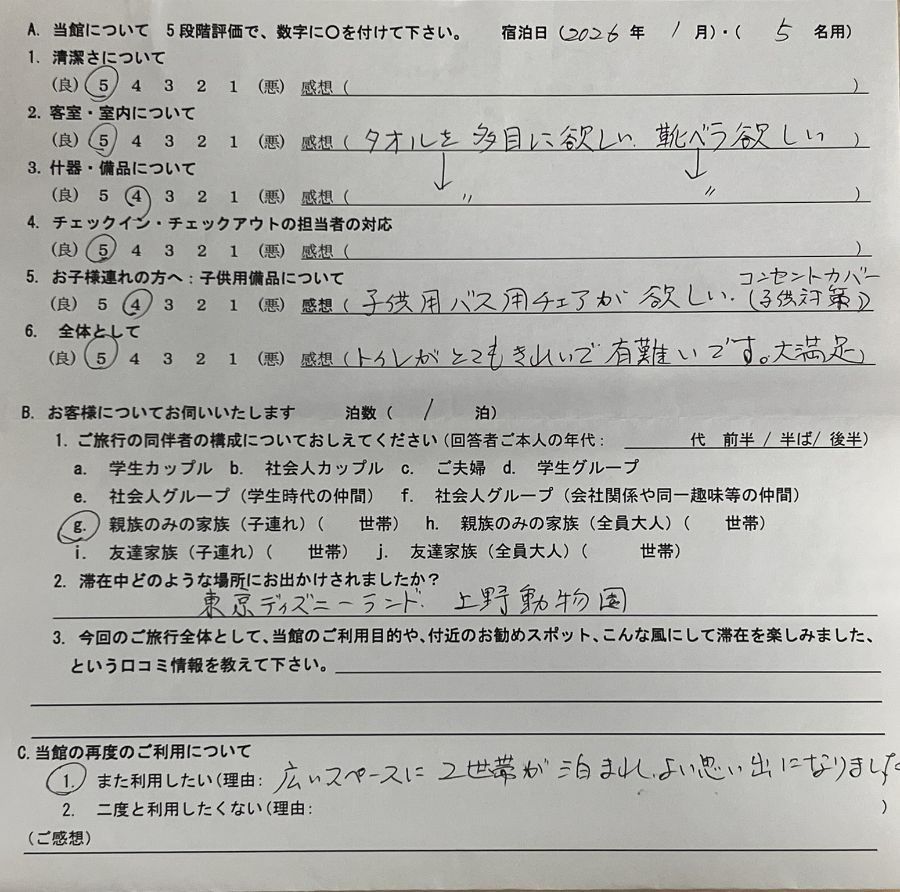 A. 当館について 5段階評価で、数字に○を付けて下さい。 宿泊日(2026年 1月)・( 5 名用)
1. 清潔さについて
(良) 5 4 3 2 1 (悪) 感想( )
2. 客室・室内について
(良) 5 4 3 2 1 (悪) 感想(タオルを多目に欲しい. 靴ベラ欲しい)
3. 什器・備品について
(良) 5 4 3 2 1 (悪) 感想( ↓ 〃 ↓ 〃 )
4. チェックイン・チェックアウトの担当者の対応
(良) 5 4 3 2 1 (悪) 感想( )
5. お子様連れの方へ:子供用備品について コンセントカバー
(良) 5 4 3 2 1 (悪) 感想(子供用バス用チェアが欲しい. (子供対策))
6. 全体として
(良) 5 4 3 2 1 (悪) 感想(トイレがとてもきれいで有難いです。大満足)
B. お客様についてお伺いいたします 泊数( 1 泊)
1. ご旅行の同伴者の構成についておしえてください(回答者ご本人の年代: 代 前半 / 半ば/ 後半)
a. 学生カップル b. 社会人カップル c. ご夫婦 d. 学生グループ
e. 社会人グループ(学生時代の仲間) f. 社会人グループ(会社関係や同一趣味等の仲間)
g. 親族のみの家族(子連れ)( 世帯) h. 親族のみの家族(全員大人)( 世帯)
i. 友達家族(子連れ)( 世帯) j. 友達家族(全員大人)( 世帯)
2. 滞在中どのような場所にお出かけされましたか?
東京ディズニーランド. 上野動物園
3. 今回のご旅行全体として、当館のご利用目的や、付近のお勧めスポット、こんな風にして滞在を楽しみました、
という口コミ情報を教えて下さい。
C. 当館の再度のご利用について
1. また利用したい(理由: 広いスペースに2世帯が泊まれ、よい思い出になりました
2. 二度と利用したくない(理由: )
(ご感想)